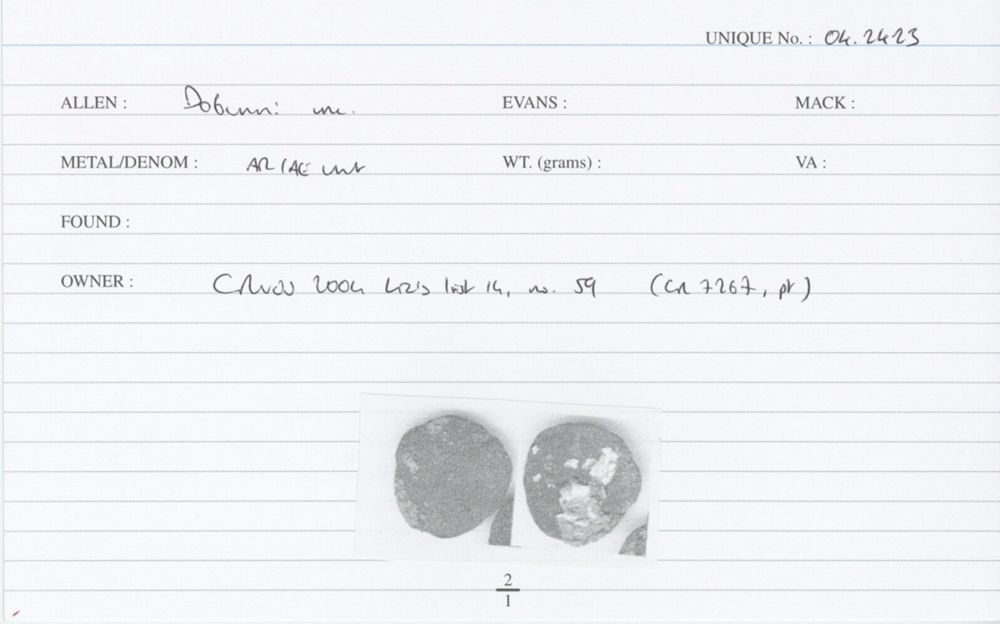 UNIQUE No. : 04.2423
ALLEN : Dobunni unc. EVANS : MACK :
METAL/DENOM : AR/AE unit WT. (grams) : VA :
FOUND :
OWNER : 2004 list 14, no. 59 (CR 7267, pt)
2
1